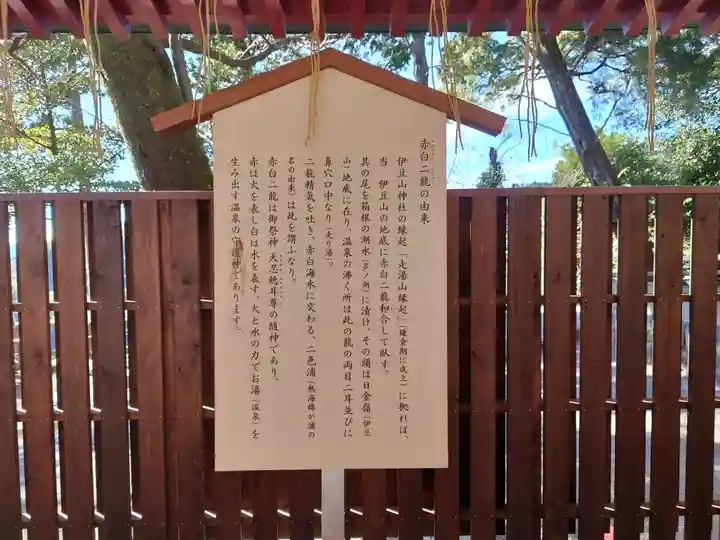 赤白二龍の由来
伊豆山神社の縁起「走湯山縁起」(鎌倉期に成立)に拠れば、
当 伊豆山の地底に赤白二龍和合して臥す。
其の尾を箱根の湖水(芦ノ湖)に漬け、その頭は日金嶺(伊豆
山)地底に在り、温泉の沸く所は此の龍の両目二耳並びに
鼻穴口中なり(走り湯)。
二龍精気を吐き、赤白海水に交わる、二色浦(熱海錦が浦の
名の由来)は此を謂ふなり。
赤白二龍は御祭神 天忍穂耳尊の随神であり、
赤は火を表し白は水を表す、火と水の力でお湯(温泉)を
生み出す温泉の守護神であります。